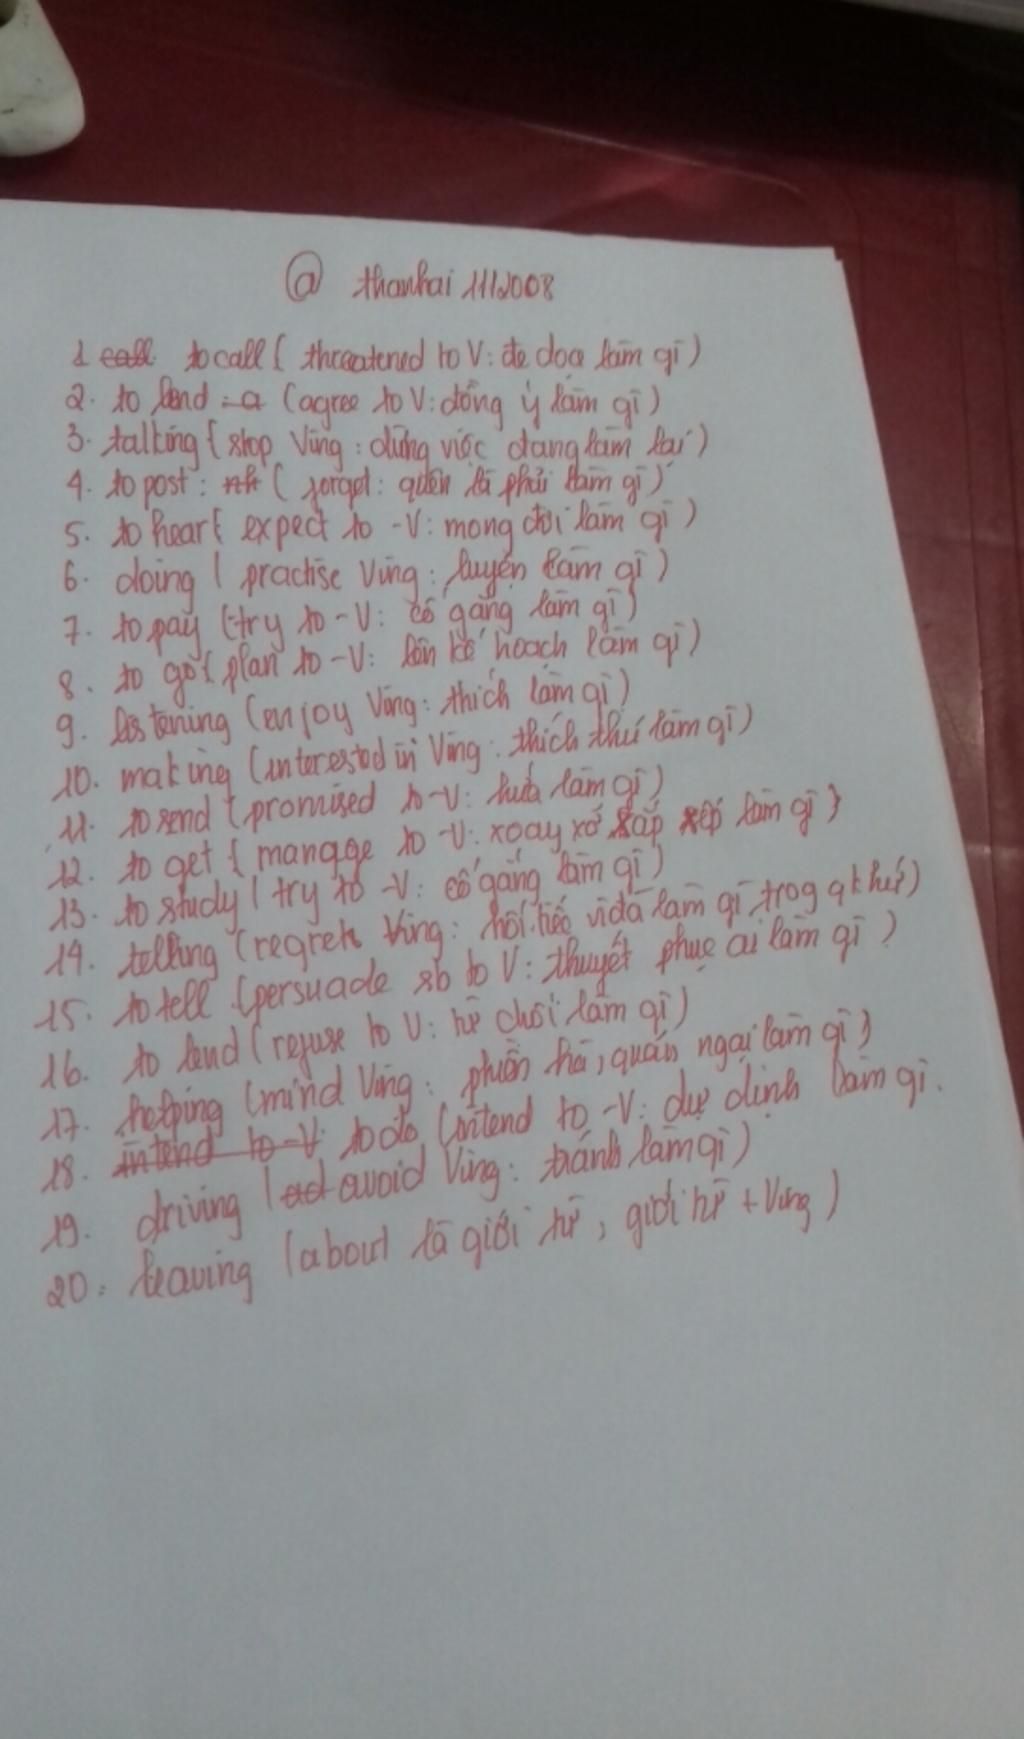 @ thanhai 11/2008
1 call to call ( threatened to V: đe dọa làm gì)
2. to lend :a (agree to V: đồng ý làm gì)
3. talking ( stop Ving : dừng việc đang làm lại)
4. to post : ( forget : quên là phải làm gì)
5. to hear ( expect to -V: mong đợi làm gì )
6. doing ( practise Ving : luyện làm gì )
7. to pay (try to -V: cố gắng làm gì)
8. to go ( plan to -V: lên kế hoạch làm gì)
9. listening (enjoy Ving : thích làm gì)
10. making (interested in Ving : thích thú làm gì)
11. to send ( promised to -V: hứa làm gì)
12. to get ( manage to -V: xoay xở sắp xếp làm gì )
13. to study ( try to -V: cố gắng làm gì )
14. telling (regret Ving : hối tiếc vì đã làm gì trog qk hứ)
15. to tell (persuade sb to V: thuyết phục ai làm gì )
16. to lend ( refuse to V: từ chối làm gì)
17. helping (mind Ving : phiền hà, quán ngại làm gì)
18. intend to -V to do (intend to -V: dự định làm gì.
19. driving ( avoid Ving : tránh làm gì )
20. leaving (about là giới từ , giới từ + Ving )